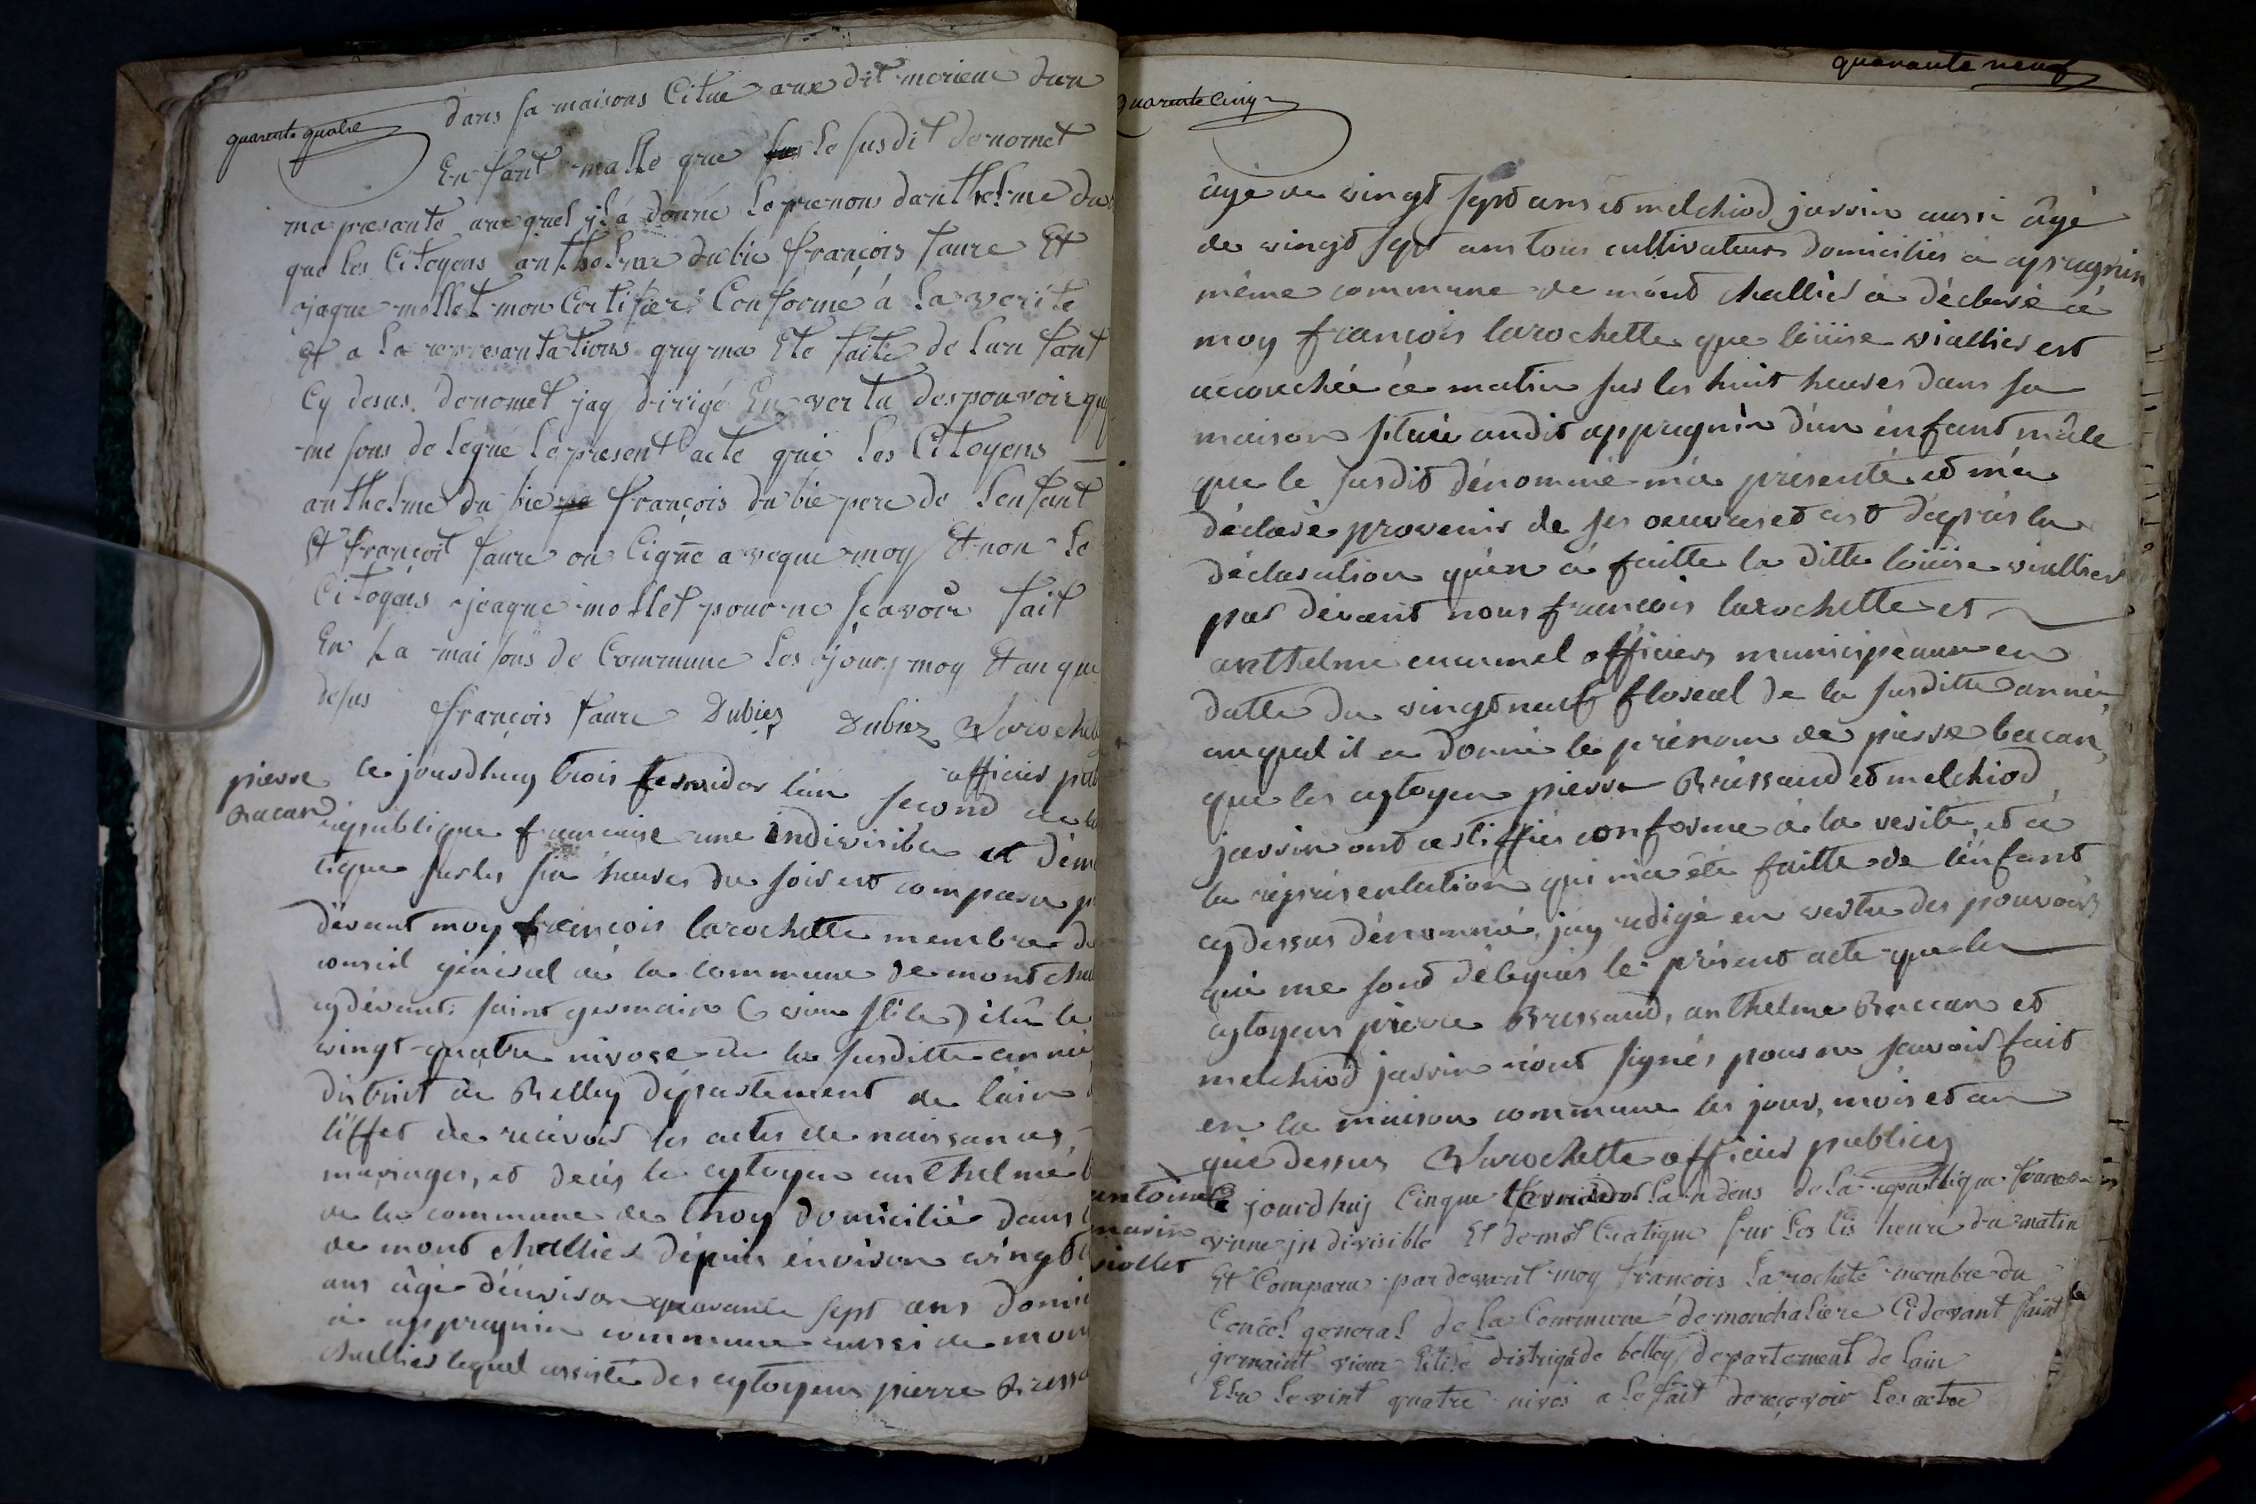 quarente quatre
dans sa maisons Citue aux dit morieue dun
En fant malle que le susdit denomet
ma presanté au quel il a donné le prenons danthelme du
que les Citoyens anthelme dubie françois faure Et
jaque mollet mon Certifier Conforme á la verite
Et a la represantations quy ma Ete faite de lan fant
Cy desus denomet jay dirigé En vertu des pouvoir quy
me sons de legué le present acte qui les Citoyens
anthelme du bie françois du bie pere de lenfant
Et françoit faure on Cigne a veque moy Et non le
Citoyens jeaque mollet pour ne sçavoir fait
En la maisons de Commune les jours moy Et an que
desus françois faure Dubiez Dubiez Larochet
officier pub
pierre
Bacan
Ce jourdhuy trois fervidor l'an second de la
république francaise une indivisible et dém
tique sur les six heures du soir est comparu p
dévant moy françois larochette membre du
conseil général dé la commune de mont chal
cy dévant saint germain (vieux stile) élû le
vingt-quatre nivose de la susditte année
district de Belley département de l'ain
l'éffet de recevoir les actes de naissances,
mariages, et décés le cytoyen anthelme b
de la commune de thoy domicilié dans c
de mont challier dépuis énviron vingt
ans âgé d'énviron quarante sept ans domi
à appregnin commune aussi de mon
challier lequel assisté des cytoyens pierre Bressa
quarante neuf
quarente cinq
âgé de vingt sept ans et melchiod jarrin aussi âgé
de vingt sept ans tous cultivateurs domiciliés à apregnin
même commune de mont challier a déclaré à
moy françois larochette que loüise viallier est
accouchée cé matin sur les huit heures dans sa
maison située audit appregnin d'un énfant mâle
que le susdit dénommé m'a présenté et m'a
déclaré provenir de ses oeuvres et c'est d'après la
déclaration qu'en a faitte la ditte loüise viallier
par dévant nous françois larochette et
anthelme officiers municipeaux en
datte du vingt neuf floréal de la susditte année
auquel il a donné le prénom de pierre bacan,
que les cytoyen pierre Bressaud et melchiod
jarrin ont certiffiés conforme à la verité, et à
la réprésentation qui m'a été faitte de l'énfant
cy dessus dénommé, j'ay redigé en vertu des pouvoirs
qui me sont délégués le présent acte que les
cytoyens pierre Bressaud, anthelme Baccan et
melchiod jarrin n'ont signés pour ne savoir fait
en la maison commune les jour, mois et an
que dessus Larochette officier public
antoine
marin
viollet
Ce jourdhuj Cinque fervidor lan deus de la republique francoise
vune jndivisible Et demot Cratique sur les sis heure du matin
Et Comparu par devant moy françois larochete membre du
Concel general de la Commune de monchaliere Cidevant saint
germaint vieux stile distrique de belley departement de lain
Elu le vint quatre nivos a le fait de reçevoir les actee